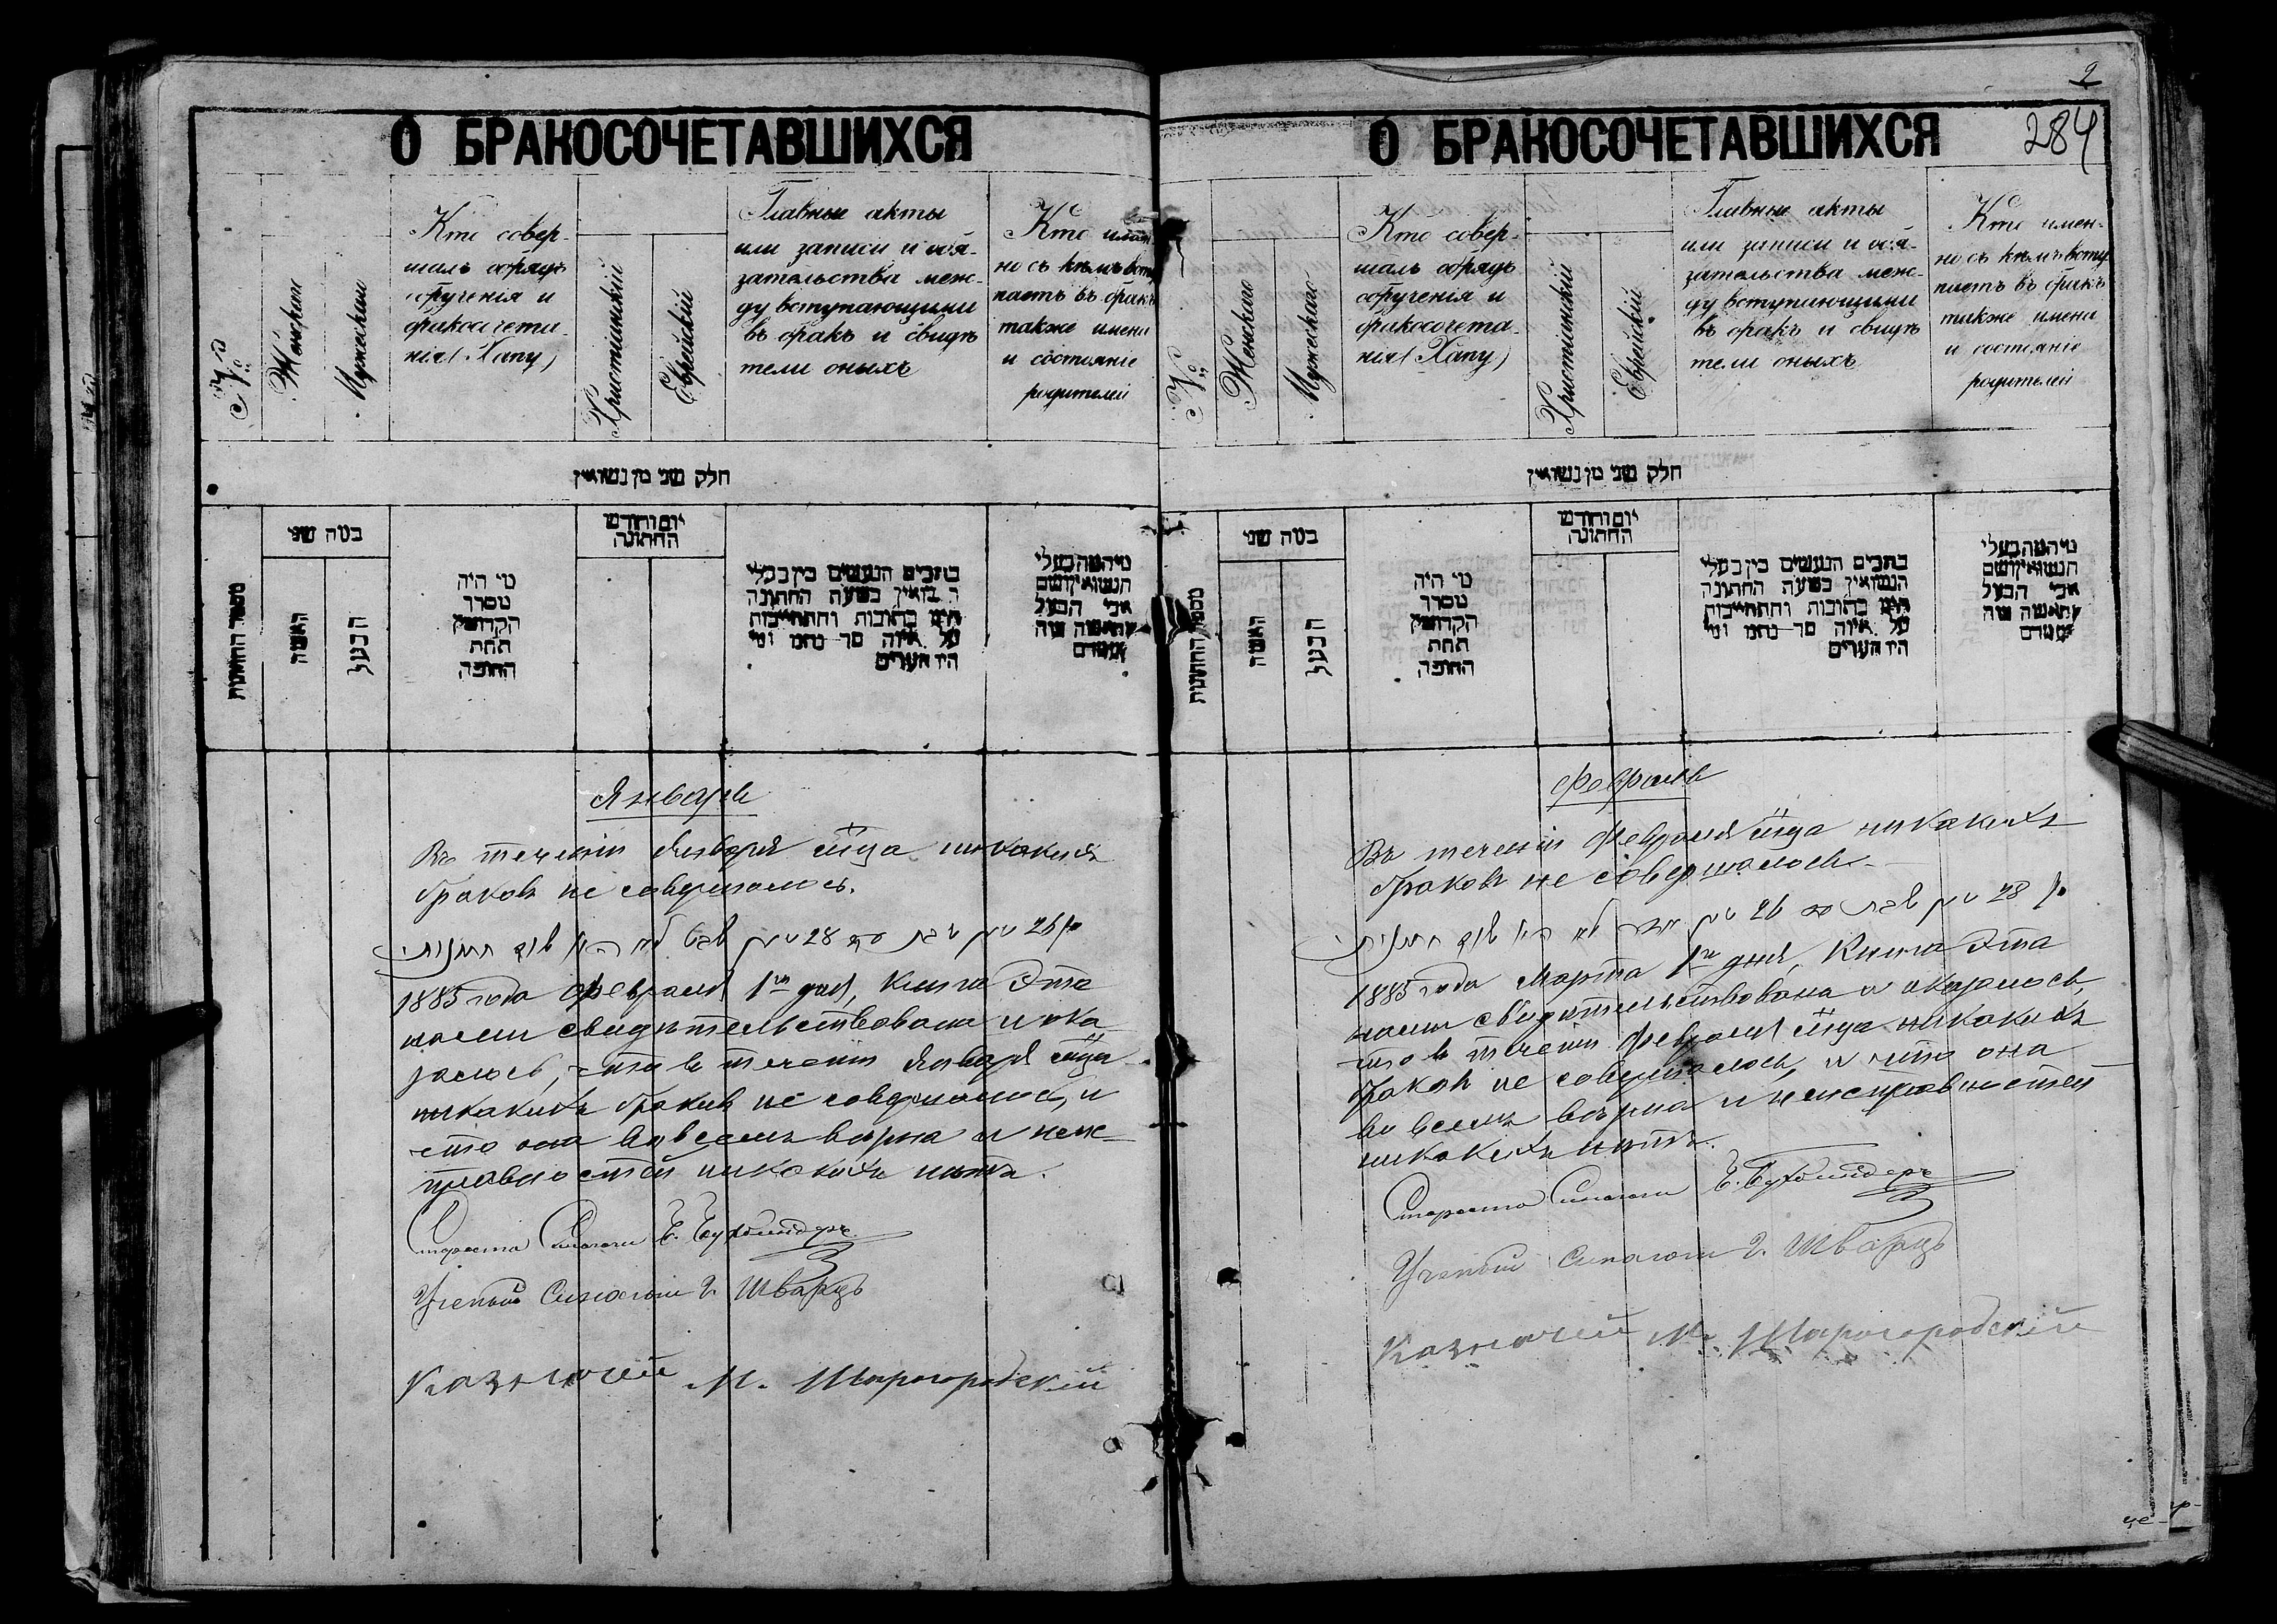 О БРАКОСОЧЕТАВШИХСЯ
№
Женскаго
Мужескаго
Кто совер-
шалъ обрядъ
обрученія и
бракосочета-
нія (Хапу)
Христіанскій
Еврейскій
Главные акты
или записи и обя-
зательства меж-
ду вступающими
въ бракъ и свидѣ
тели оныхъ
Кто имен-
но съ кѣмъ всту
паетъ въ бракъ
также имена
и состояніе
родителей
חלק שני מן נשואין
מספר החתונות
כמה שני
האשה
הבעל
מי היה
מסדר
הקדושין
תחת
החופה
יום וחודש
החתונה
כתבים הנעשים בין בעלי
הנשואין בשעת החתונה
כתובות והתחייבות
על איזה סך נתנו ומי
היו העדים
מי המה בעלי
הנשואין ושם
אבי הבעל
והאשה ומה
Январь
Въ теченіи Января м-ца никакихъ
браковъ не совершалось.
1885 года Февраля 1го дня, Книга эта
нами свидѣтельствована и ока
залось, что въ теченіи Января м-ца
никакихъ браковъ не совершалось, и
что она во всемъ вѣрна и неис-
правностей никакихъ нѣтъ.
Староста Синагоги Б. Бухбиндеръ
Ученый Синагоги Г. Шварцъ
Казначей М. Шарогородскій
2
284
О БРАКОСОЧЕТАВШИХСЯ
№
Женскаго
Мужескаго
Кто совер-
шалъ обрядъ
обрученія и
бракосочета-
нія (Хапу)
Христіанскій
Еврейскій
Главные акты
или записи и обя-
зательства меж-
ду вступающими
въ бракъ и свидѣ
тели оныхъ
Кто имен-
но съ кѣмъ всту
паетъ въ бракъ
также имена
и состояніе
родителей
חלק שני מן נשואין
מספר החתונות
כמה שני
האשה
הבעל
מי היה
מסדר
הקדושין
תחת
החופה
יום וחודש
החתונה
כתבים הנעשים בין בעלי
הנשואין בשעת החתונה
כתובות והתחייבות
על איזה סך נתנו ומי
היו העדים
מי המה בעלי
הנשואין ושם
אבי הבעל
והאשה ומה
Февраль
Въ теченіи Февраля м-ца никакихъ
браковъ не совершалось.
1885 года Марта 1го дня, Книга эта
нами свидѣтельствована и оказалось,
что въ теченіи Февраля м-ца никакихъ
браковъ не совершалось, и что она
во всемъ вѣрна и неисправностей
никакихъ нѣтъ.
Староста Синагоги Б. Бухбиндеръ
Ученый Синагоги Г. Шварцъ
Казначей М. Шарогородскій